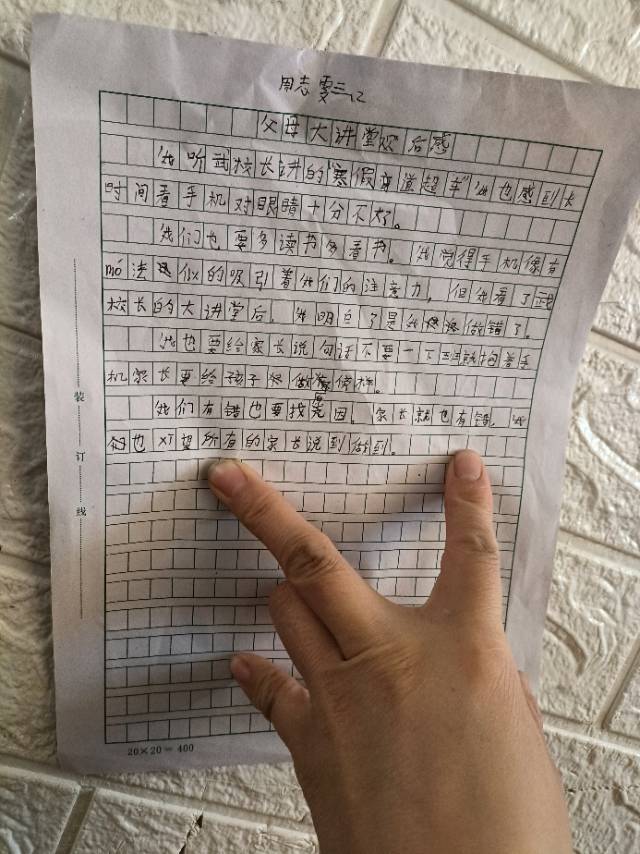 周志雯 三、2
父母大讲堂观后感
我听武校长讲的"寒假弯道超车"我也感到长
时间看手机对眼睛十分不好。
我们也要多读书多看书。我觉得手机像有
mó法似的吸引着我们的注意力。但我看了武
校长的大讲堂后，我明白了是我做错了。
我也要给家长说句话不要一下就抱着手
机家长要给孩子做榜样。
我们有错也要找原因。家长就也有错，
也对望所有的家长说到做到。
装
订
线
20×20=400